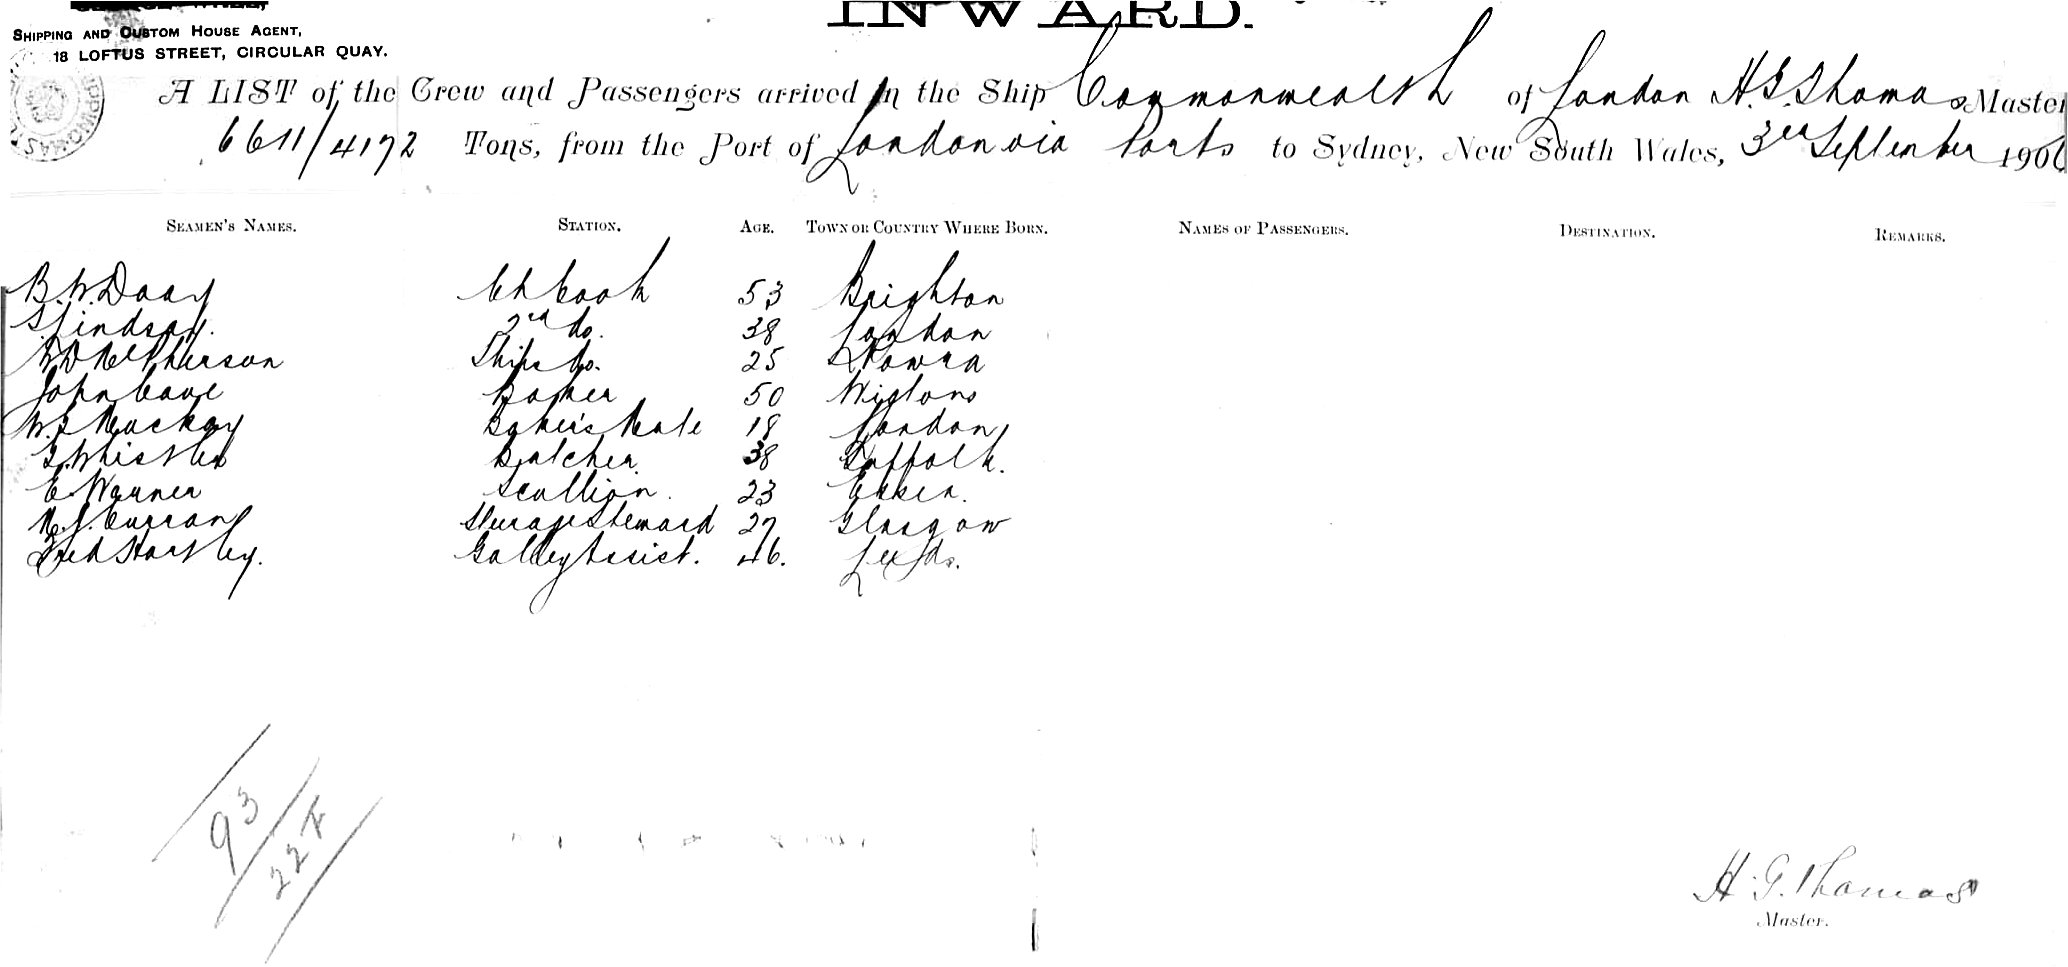 INWARD.
SHIPPING AND CUSTOM HOUSE AGENT,
18 LOFTUS STREET, CIRCULAR QUAY.
A LIST of the Crew and Passengers arrived in the Ship Commonwealth of London H. G. Thomas Master
6611/4172 Tons, from the Port of London via Ports to Sydney, New South Wales, 3rd September 1906
SEAMEN'S NAMES. STATION. AGE. TOWN OR COUNTRY WHERE BORN. NAMES OF PASSENGERS. DESTINATION. REMARKS.
B. W. Ch Cook 53 Brighton
S Lindsay. 2nd do. 38 London
W D McPherson Ships do. 25 Nowra
John Cave Baker 50 Wigtons
W. G Mackay Baker's Mate 18 London
G. Whistler Butcher. 38 Suffolk.
E. Warner Scullion. 23 Essex.
M. J. Curran Steerage Steward 27 Glasgow
Fred Hartley. Galley Assist. 46. Leeds.
93
22
H. G. Thomas
Master.